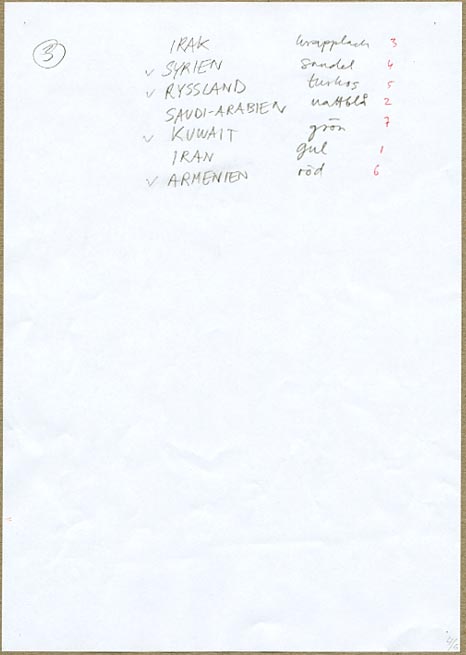 3
IRAK krapplack 3
v SYRIEN sandel 4
v RYSSLAND turkos 5
SAUDI-ARABIEN nattblå 2
v KUWAIT grön 7
IRAN gul 1
v ARMENIEN röd 6